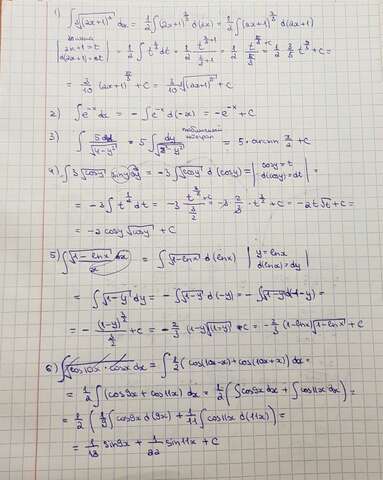 1) ∫ ∛(2x+1)² dx = 1/2 ∫ (2x+1)^(2/3) d(2x) = 1/2 ∫ (2x+1)^(2/3) d(2x+1)
| замена 2x+1 = t d(2x+1) = dt | = 1/2 ∫ t^(2/3) dt = 1/2 t^(2/3+1)/(2/3+1) = 1/2 t^(5/3)/(5/3) + c = 1/2 · 3/5 t^(5/3) + C =
= 3/10 (2x+1)^(5/3) + C = 3/10 ∛(2x+1)⁵ + C
2) ∫ e^(-x) dx = - ∫ e^(-x) d(-x) = -e^(-x) + C
3) ∫ 5dy/√(4-y²) = 5 ∫ dy/√(2²-y²) табличный интеграл = 5 · arcsin x/2 + C
4) ∫ 3 √cosy siny dy = -3 ∫ √cosy d(cosy) = | cosy = t d(cosy) = dt | =
= -3 ∫ t^(1/2) dt = -3 t^(3/2)/(3/2) + C = -3 · 2/3 · t^(3/2) + C = -2t√t + C =
= -2 cosy √cosy + C
5) ∫ √(1-lnx) dx/x = ∫ √(1-lnx) d(lnx) | y = lnx d(lnx) = dy |
= ∫ √(1-y) dy = - ∫ √(1-y) d(-y) = - ∫ √(1-y) d(1-y) =
= - (1-y)^(3/2)/(3/2) + C = - 2/3 (1-y)√(1-y) + C = - 2/3 (1-lnx)√(1-lnx) + C
6) ∫ cos10x · cosx dx = ∫ 1/2 (cos(10x-x) + cos(10x+x)) dx =
= 1/2 ∫ (cos9x + cos11x) dx = 1/2 (∫ cos9x dx + ∫ cos11x dx) =
= 1/2 (1/9 ∫ cos9x d(9x) + 1/11 ∫ cos11x d(11x)) =
= 1/18 sin9x + 1/22 sin11x + C